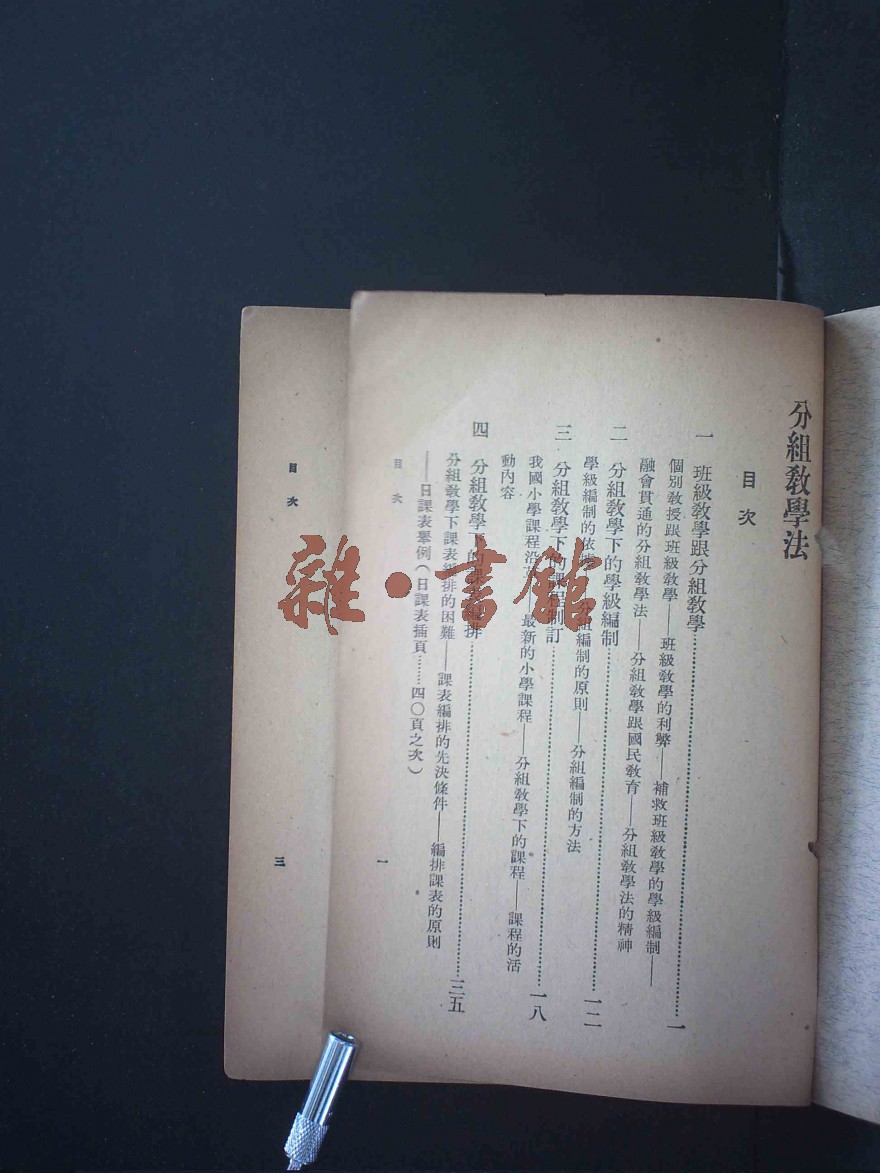 分組教學法
目次
一 班級教學跟分組教學……一
個別教授跟班級教學——班級教學的利弊——補救班級教學的學級編制——
融會貫通的分組教學法——分組教學跟國民教育——分組教學法的精神
二 分組教學下的學級編制……一二
學級編制的依 分組編制的原則——分組編制的方法
三 分組教學下的課程制訂……一八
我國小學課程沿 ——最新的小學課程——分組教學下的課程——課程的活
動內容
四 分組教學下的 編排……三五
分組教學下課表編排的困難——課表編排的先決條件——編排課表的原則
——日課表舉例（日課表插頁……四〇頁之次）
目次
一
目次
三
雜·書館